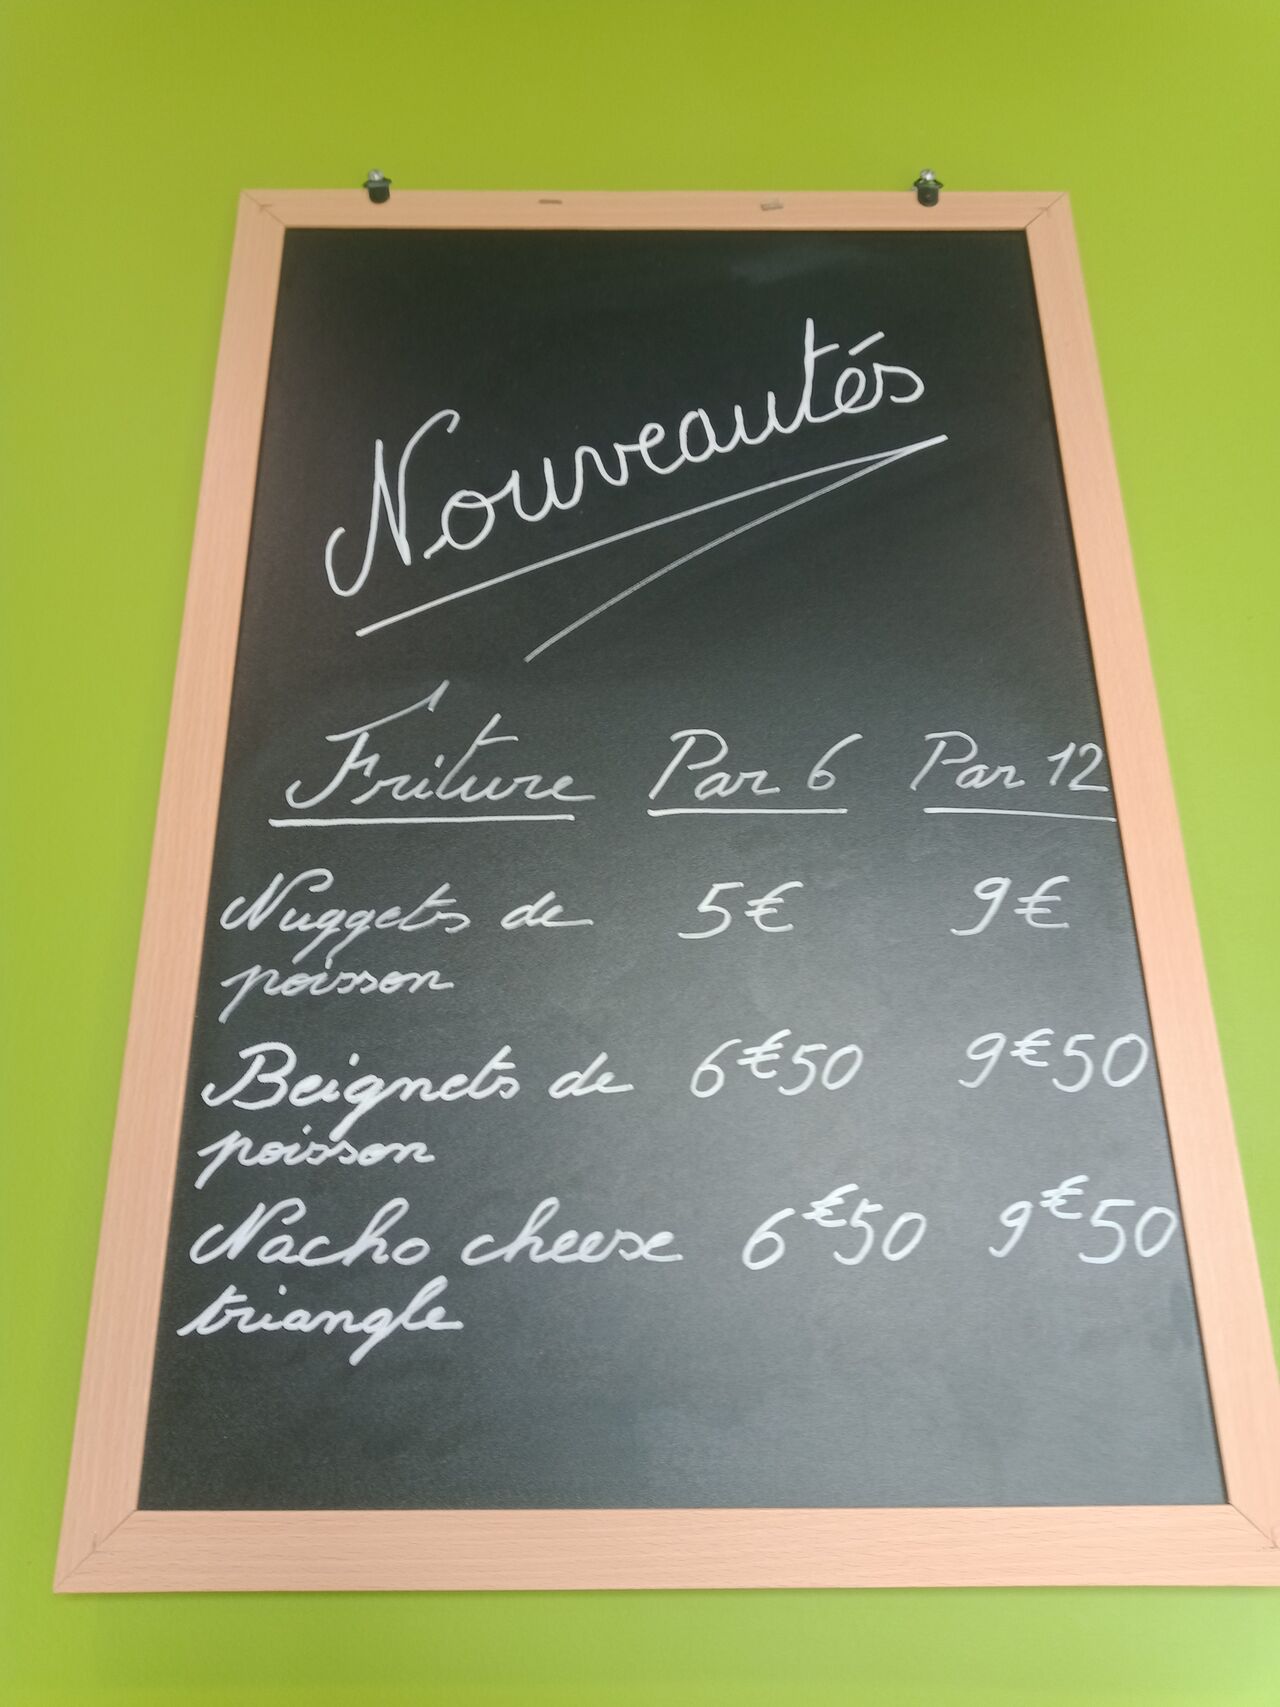 Nouveautés
Friture Par 6 Par 12
Nuggets de 5€ 9€
poisson
Beignets de 6€50 9€50
poisson
Nacho cheese 6€50 9€50
triangle